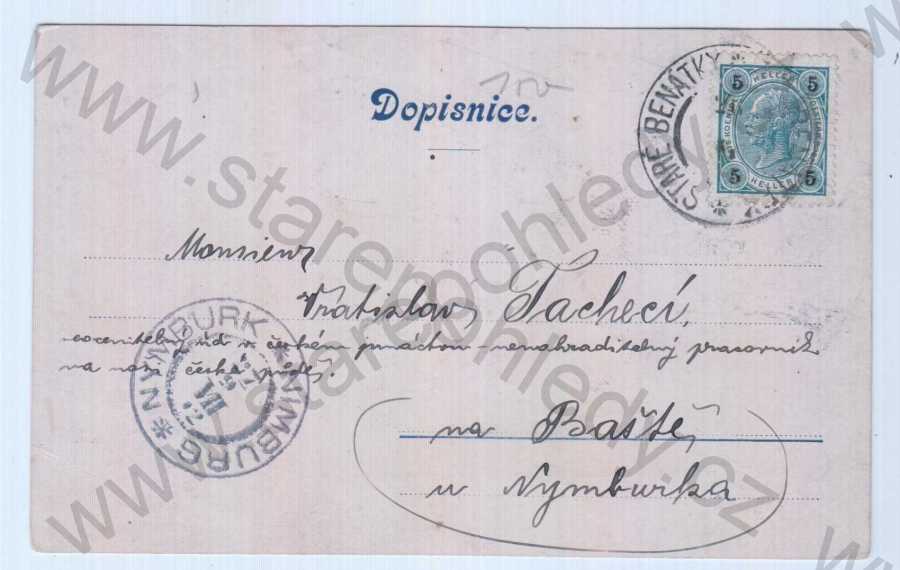 Dopisnice.
STARÉ BENÁTKY
5 HELLER 5
5 HELLER 5
Monsieur
Vratislav Tachecí,
v českém
nenahraditelný pracovník
na naší české
NYMBURK * NIMBURG *
VII
na Baště,
u Nymburka
www.starepohledy.cz
www.starepohledy.cz